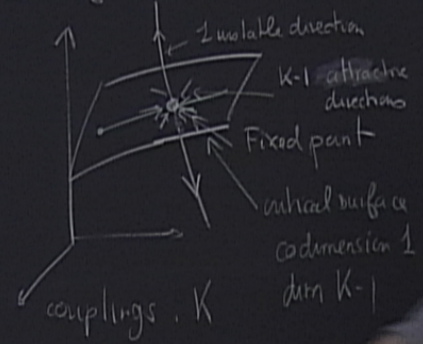 1 unstable direction
K-1 attractive
directions
Fixed point
critical surface
codimension 1
dim K-1
couplings. K